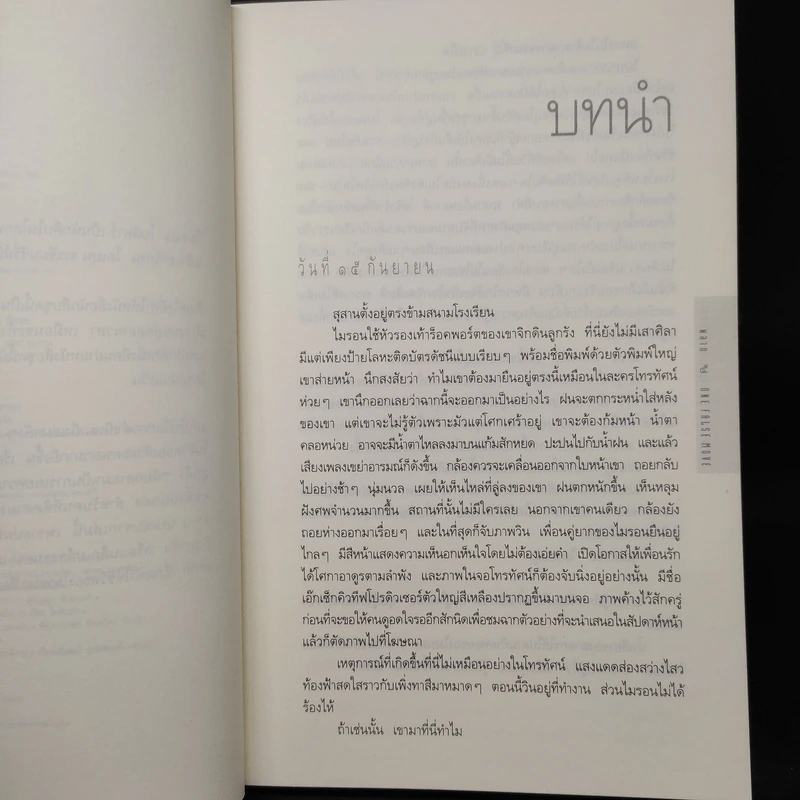 บทนำ
วันที่ ๑๕ กันยายน
สุสานตั้งอยู่ตรงข้ามสนามโรงเรียน
ไมรอนใช้หัวรองเท้าร็อคพอร์ตของเขาจิกดินลูกรัง ที่นี่ยังไม่มีเสาศิลา
มีแต่เพียงป้ายโลหะติดบัตรดัชนีแบบเรียบๆ พร้อมชื่อพิมพ์ด้วยตัวพิมพ์ใหญ่
เขาส่ายหน้า นึกสงสัยว่า ทำไมเขาต้องมายืนอยู่ตรงนี้เหมือนในละครโทรทัศน์
ห่วยๆ เขานึกออกเลยว่าฉากนี้จะออกมาเป็นอย่างไร ฝนจะตกกระหน่ำใส่หลัง
ของเขา แต่เขาจะไม่รู้ตัวเพราะมัวแต่โศกเศร้าอยู่ เขาจะต้องก้มหน้า น้ำตา
คลอหน่วย อาจจะมีน้ำตาไหลลงมาบนแก้มสักหยด ปะปนไปกับน้ำฝน และแล้ว
เสียงเพลงเขย่าอารมณ์ก็ดังขึ้น กล้องควรจะเคลื่อนออกจากใบหน้าเขา ถอยกลับ
ไปอย่างช้าๆ นุ่มนวล เผยให้เห็นไหล่ที่ลู่ลงของเขา ฝนตกหนักขึ้น เห็นหลุม
ฝังศพจำนวนมากขึ้น สถานที่นั้นไม่มีใครเลย นอกจากเขาคนเดียว กล้องยัง
ถอยห่างออกมาเรื่อยๆ และในที่สุดก็จับภาพวิน เพื่อนคู่ยากของไมรอนยืนอยู่
ไกลๆ มีสีหน้าแสดงความเห็นอกเห็นใจโดยไม่ต้องเอ่ยคำ เปิดโอกาสให้เพื่อนรัก
ได้โศกาอาดูรตามลำพัง และภาพในจอโทรทัศน์ก็ต้องจับนิ่งอยู่อย่างนั้น มีชื่อ
เอ๊กเซ็กคิวทีฟโปรดิวเซอร์ตัวใหญ่สีเหลืองปรากฏขึ้นมาบนจอ ภาพค้างไว้สักครู่
ก่อนที่จะขอให้คนดูอดใจรออีกสักนิดเพื่อชมฉากตัวอย่างที่จะนำเสนอในสัปดาห์หน้า
แล้วก็ตัดภาพไปที่โฆษณา
เหตุการณ์ที่เกิดขึ้นที่นี่ไม่เหมือนอย่างในโทรทัศน์ แสงแดดส่องสว่างไสว
ท้องฟ้าสดใสราวกับเพิ่งทาสีมาหมาดๆ ตอนนี้วินอยู่ที่ทำงาน ส่วนไมรอนไม่ได้
ร้องไห้
ถ้าเช่นนั้น เขามาที่นี่ทำไม
พลาด
ONE FALSE MOVE